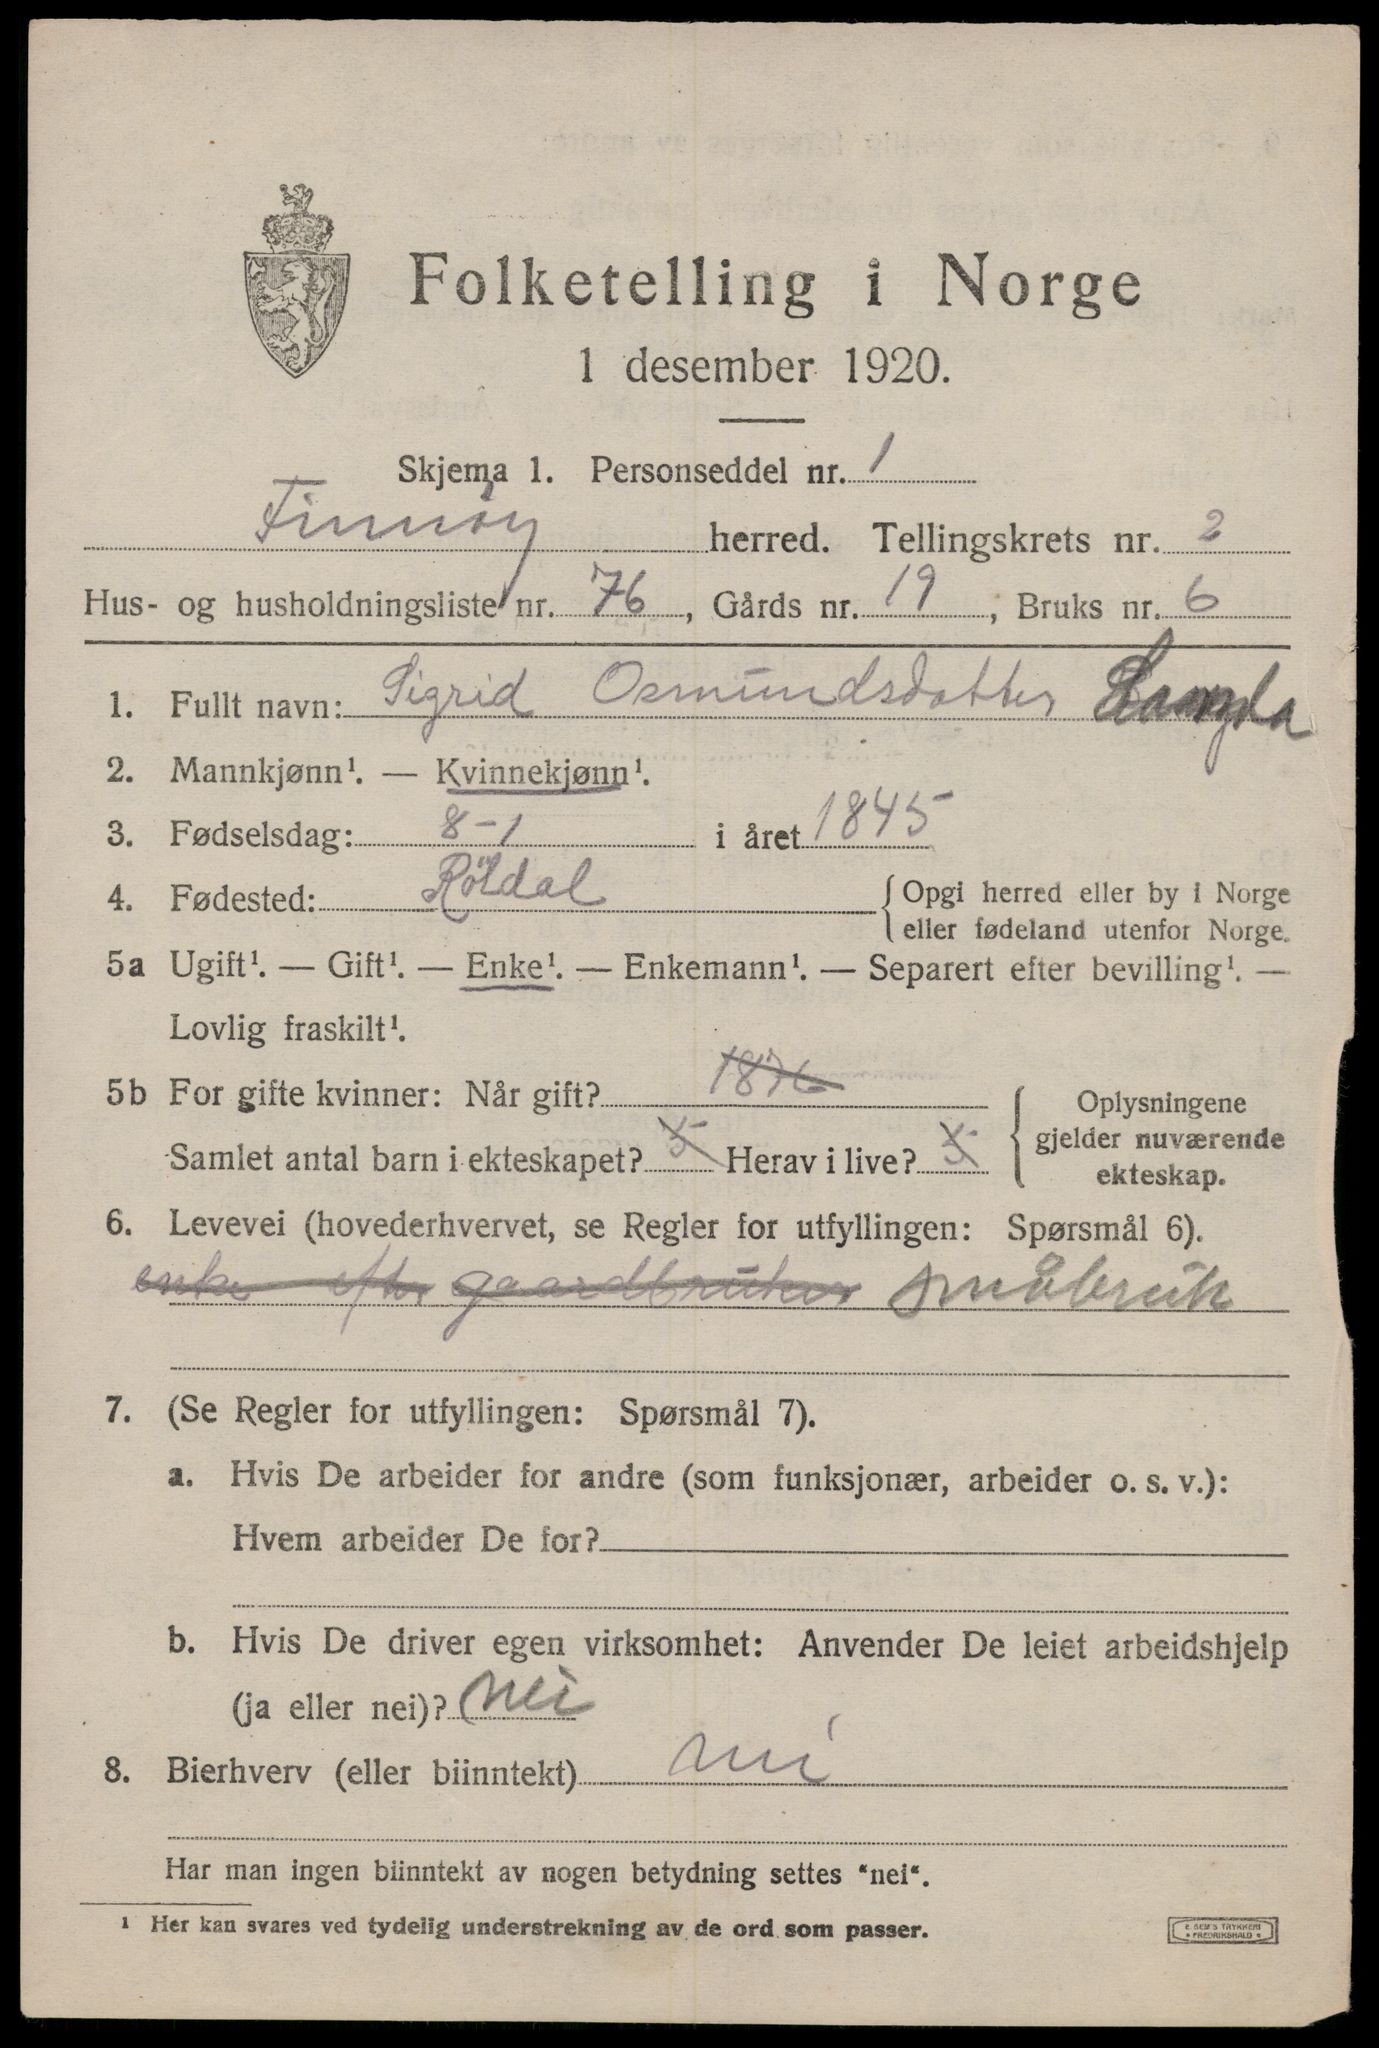 Folketelling i Norge
1 desember 1920.
Skjema 1. Personseddel nr. 1
Finnöy herred. Tellingskrets nr. 2
Hus- og husholdningsliste nr. 76, Gårds nr. 19, Bruks nr. 6
1. Fullt navn: Sigrid Osmundsdotter
2. Mannkjønn¹. — Kvinnekjønn¹.
3. Fødselsdag: 8-1 i året 1845
4. Fødested: Röldal { Opgi herred eller by i Norge
eller fødeland utenfor Norge.
5a Ugift¹. — Gift¹. — Enke¹. — Enkemann¹. — Separert efter bevilling¹. —
Lovlig fraskilt¹.
5b For gifte kvinner: Når gift? 1876
Samlet antal barn i ekteskapet? 5 Herav i live? 5
{ Oplysningene
gjelder nuværende
ekteskap.
6. Levevei (hovederhvervet, se Regler for utfyllingen: Spørsmål 6).
enke efter gaardbruker småbruk
7. (Se Regler for utfyllingen: Spørsmål 7).
a. Hvis De arbeider for andre (som funksjonær, arbeider o. s. v.):
Hvem arbeider De for?
b. Hvis De driver egen virksomhet: Anvender De leiet arbeidshjelp
(ja eller nei)? nei
8. Bierhverv (eller biinntekt) nei
Har man ingen biinntekt av nogen betydning settes "nei".
¹ Her kan svares ved tydelig understrekning av de ord som passer.
E SEM'S TRYKKERI
FREDRIKSHALD